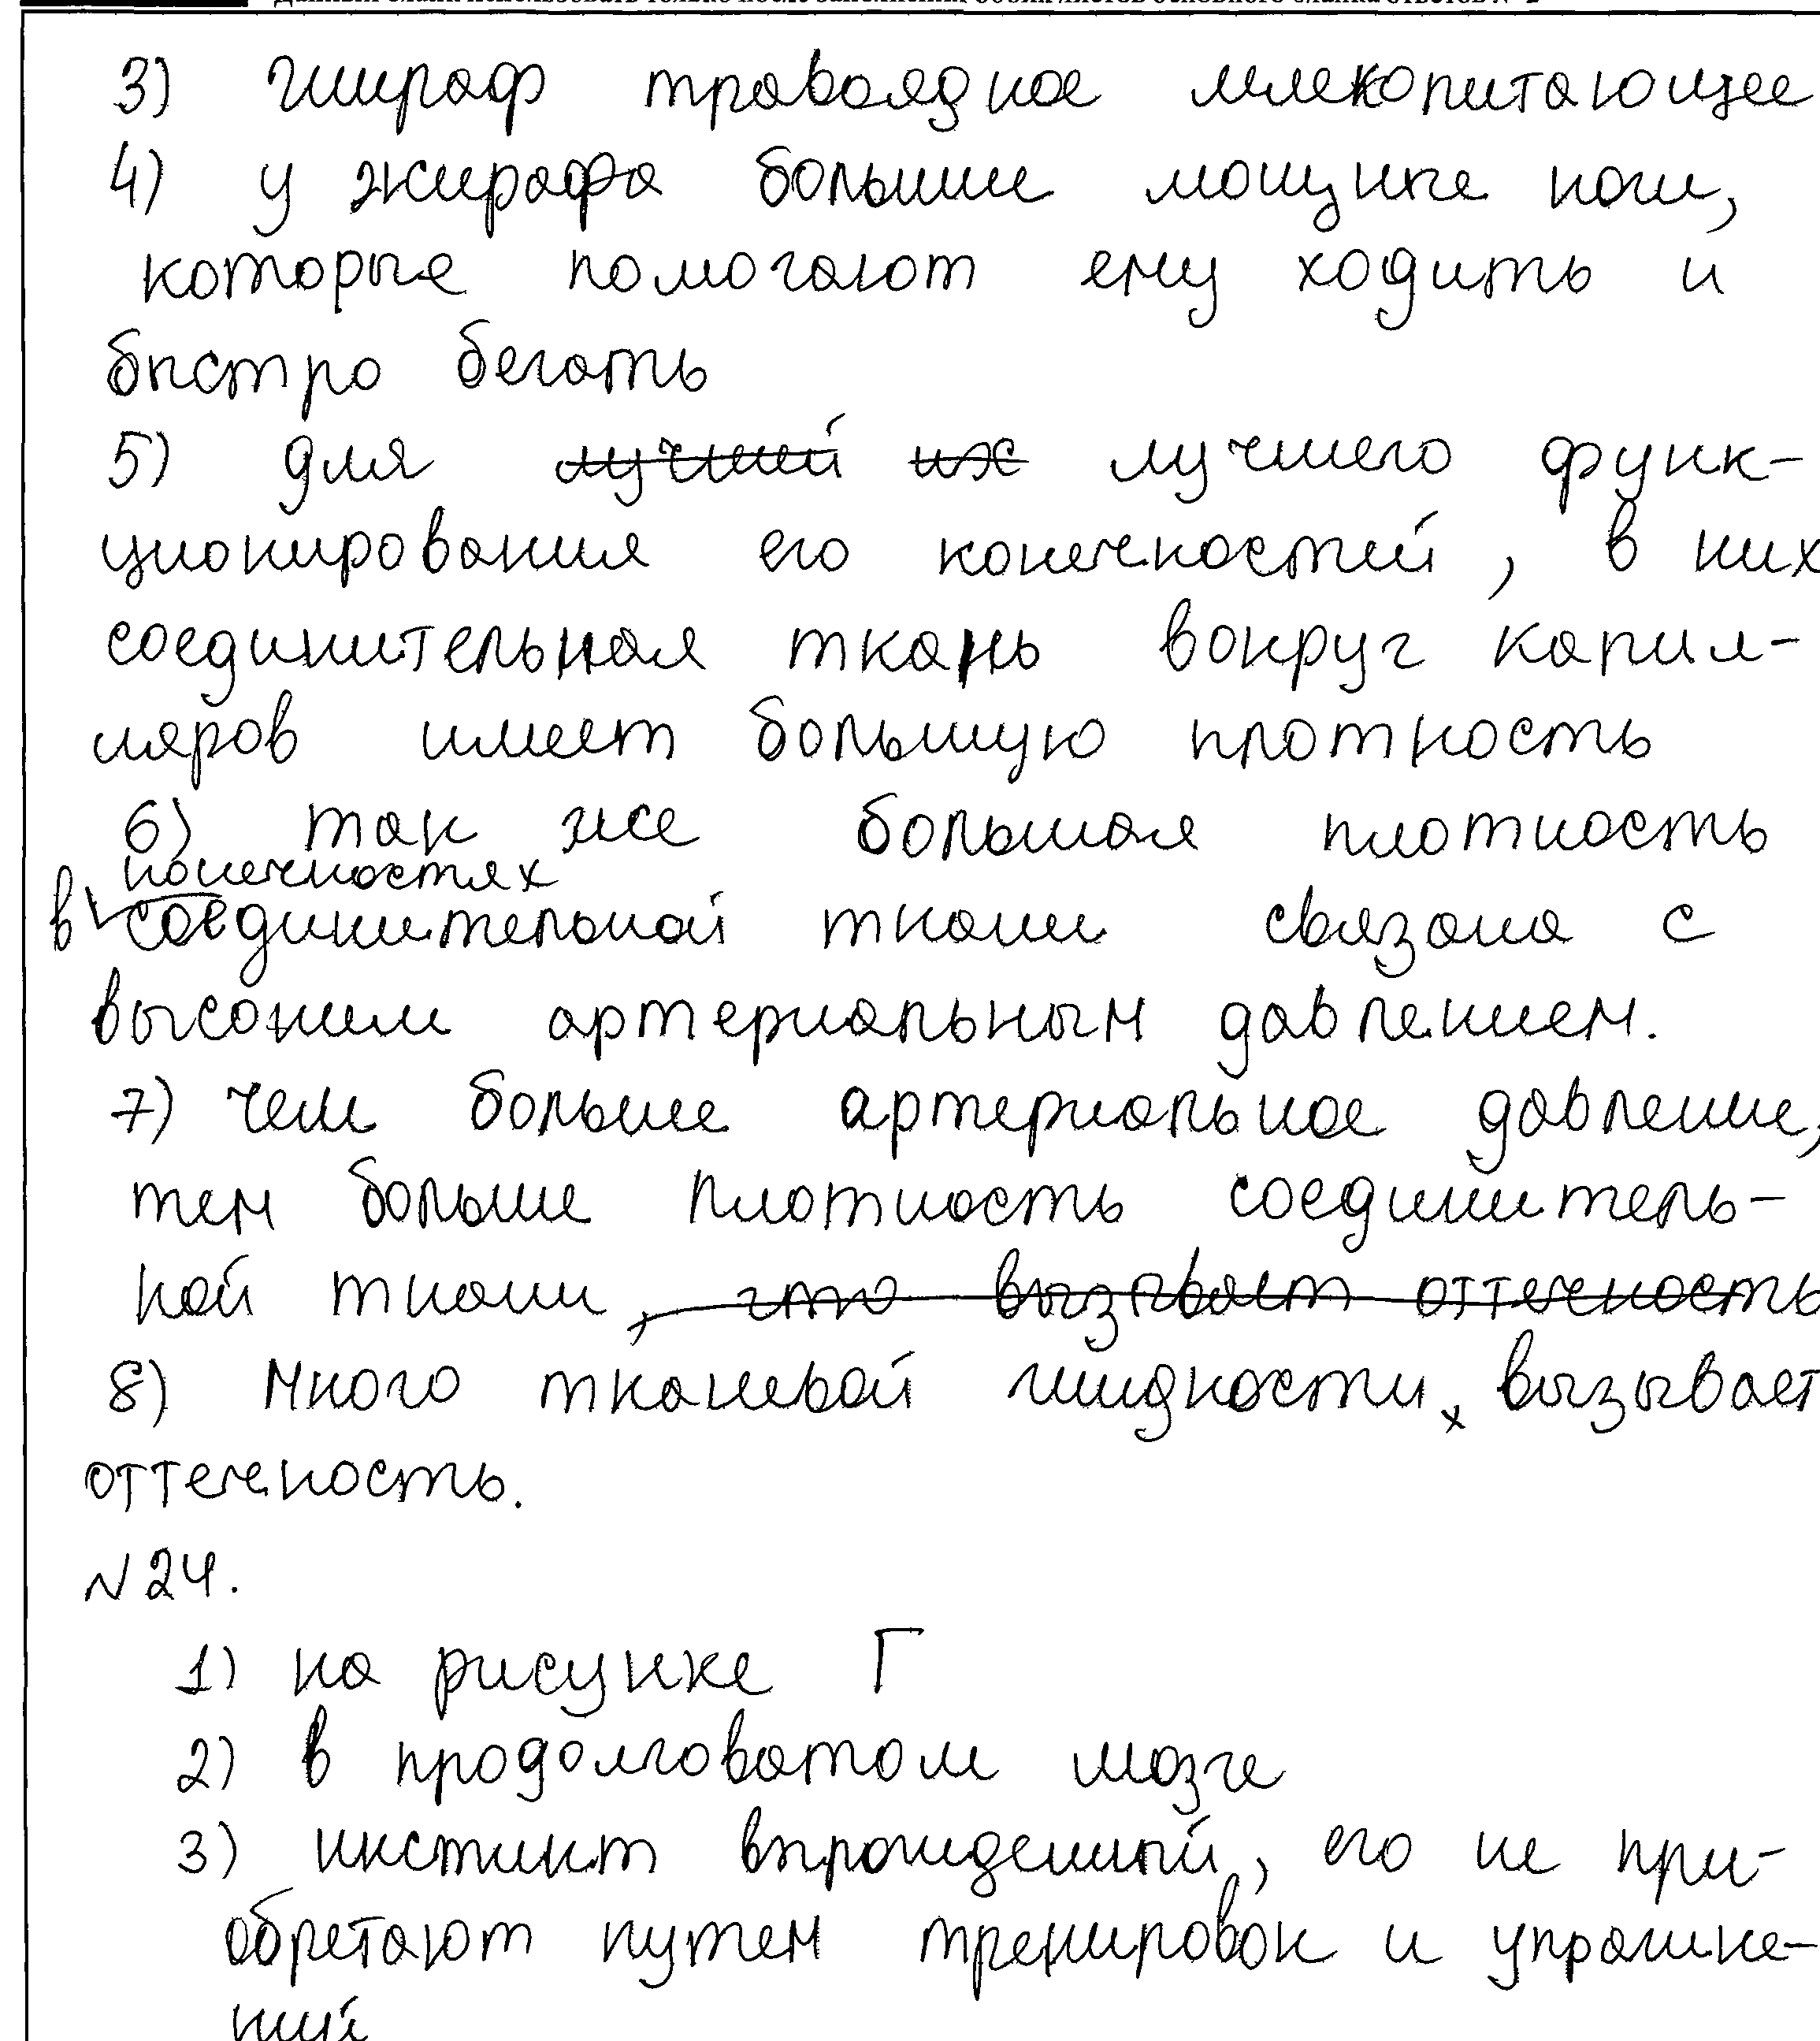 3) жираф травоядное млекопитающее
4) у жирафа большие мощные ноги,
которые помогают ему ходить и
быстро бегать
5) для лучшей их лучшего функ-
ционирования его конечностей, в них
соединительная ткань вокруг капил-
ляров имеет большую плотность
6) так же большая плотность
конечностях
в соединительной ткани связана с
высоким артериальным давлением.
7) чем больше артериальное давление,
тем больше плотность соединитель-
ной ткани, что вызывает оттечность
8) много тканевой жидкости вызывает
оттечность.
№24.
1) на рисунке Г
2) в продолговатом мозге
3) инстинкт врожденный, его не при-
обретают путем тренировок и упражне-
ний